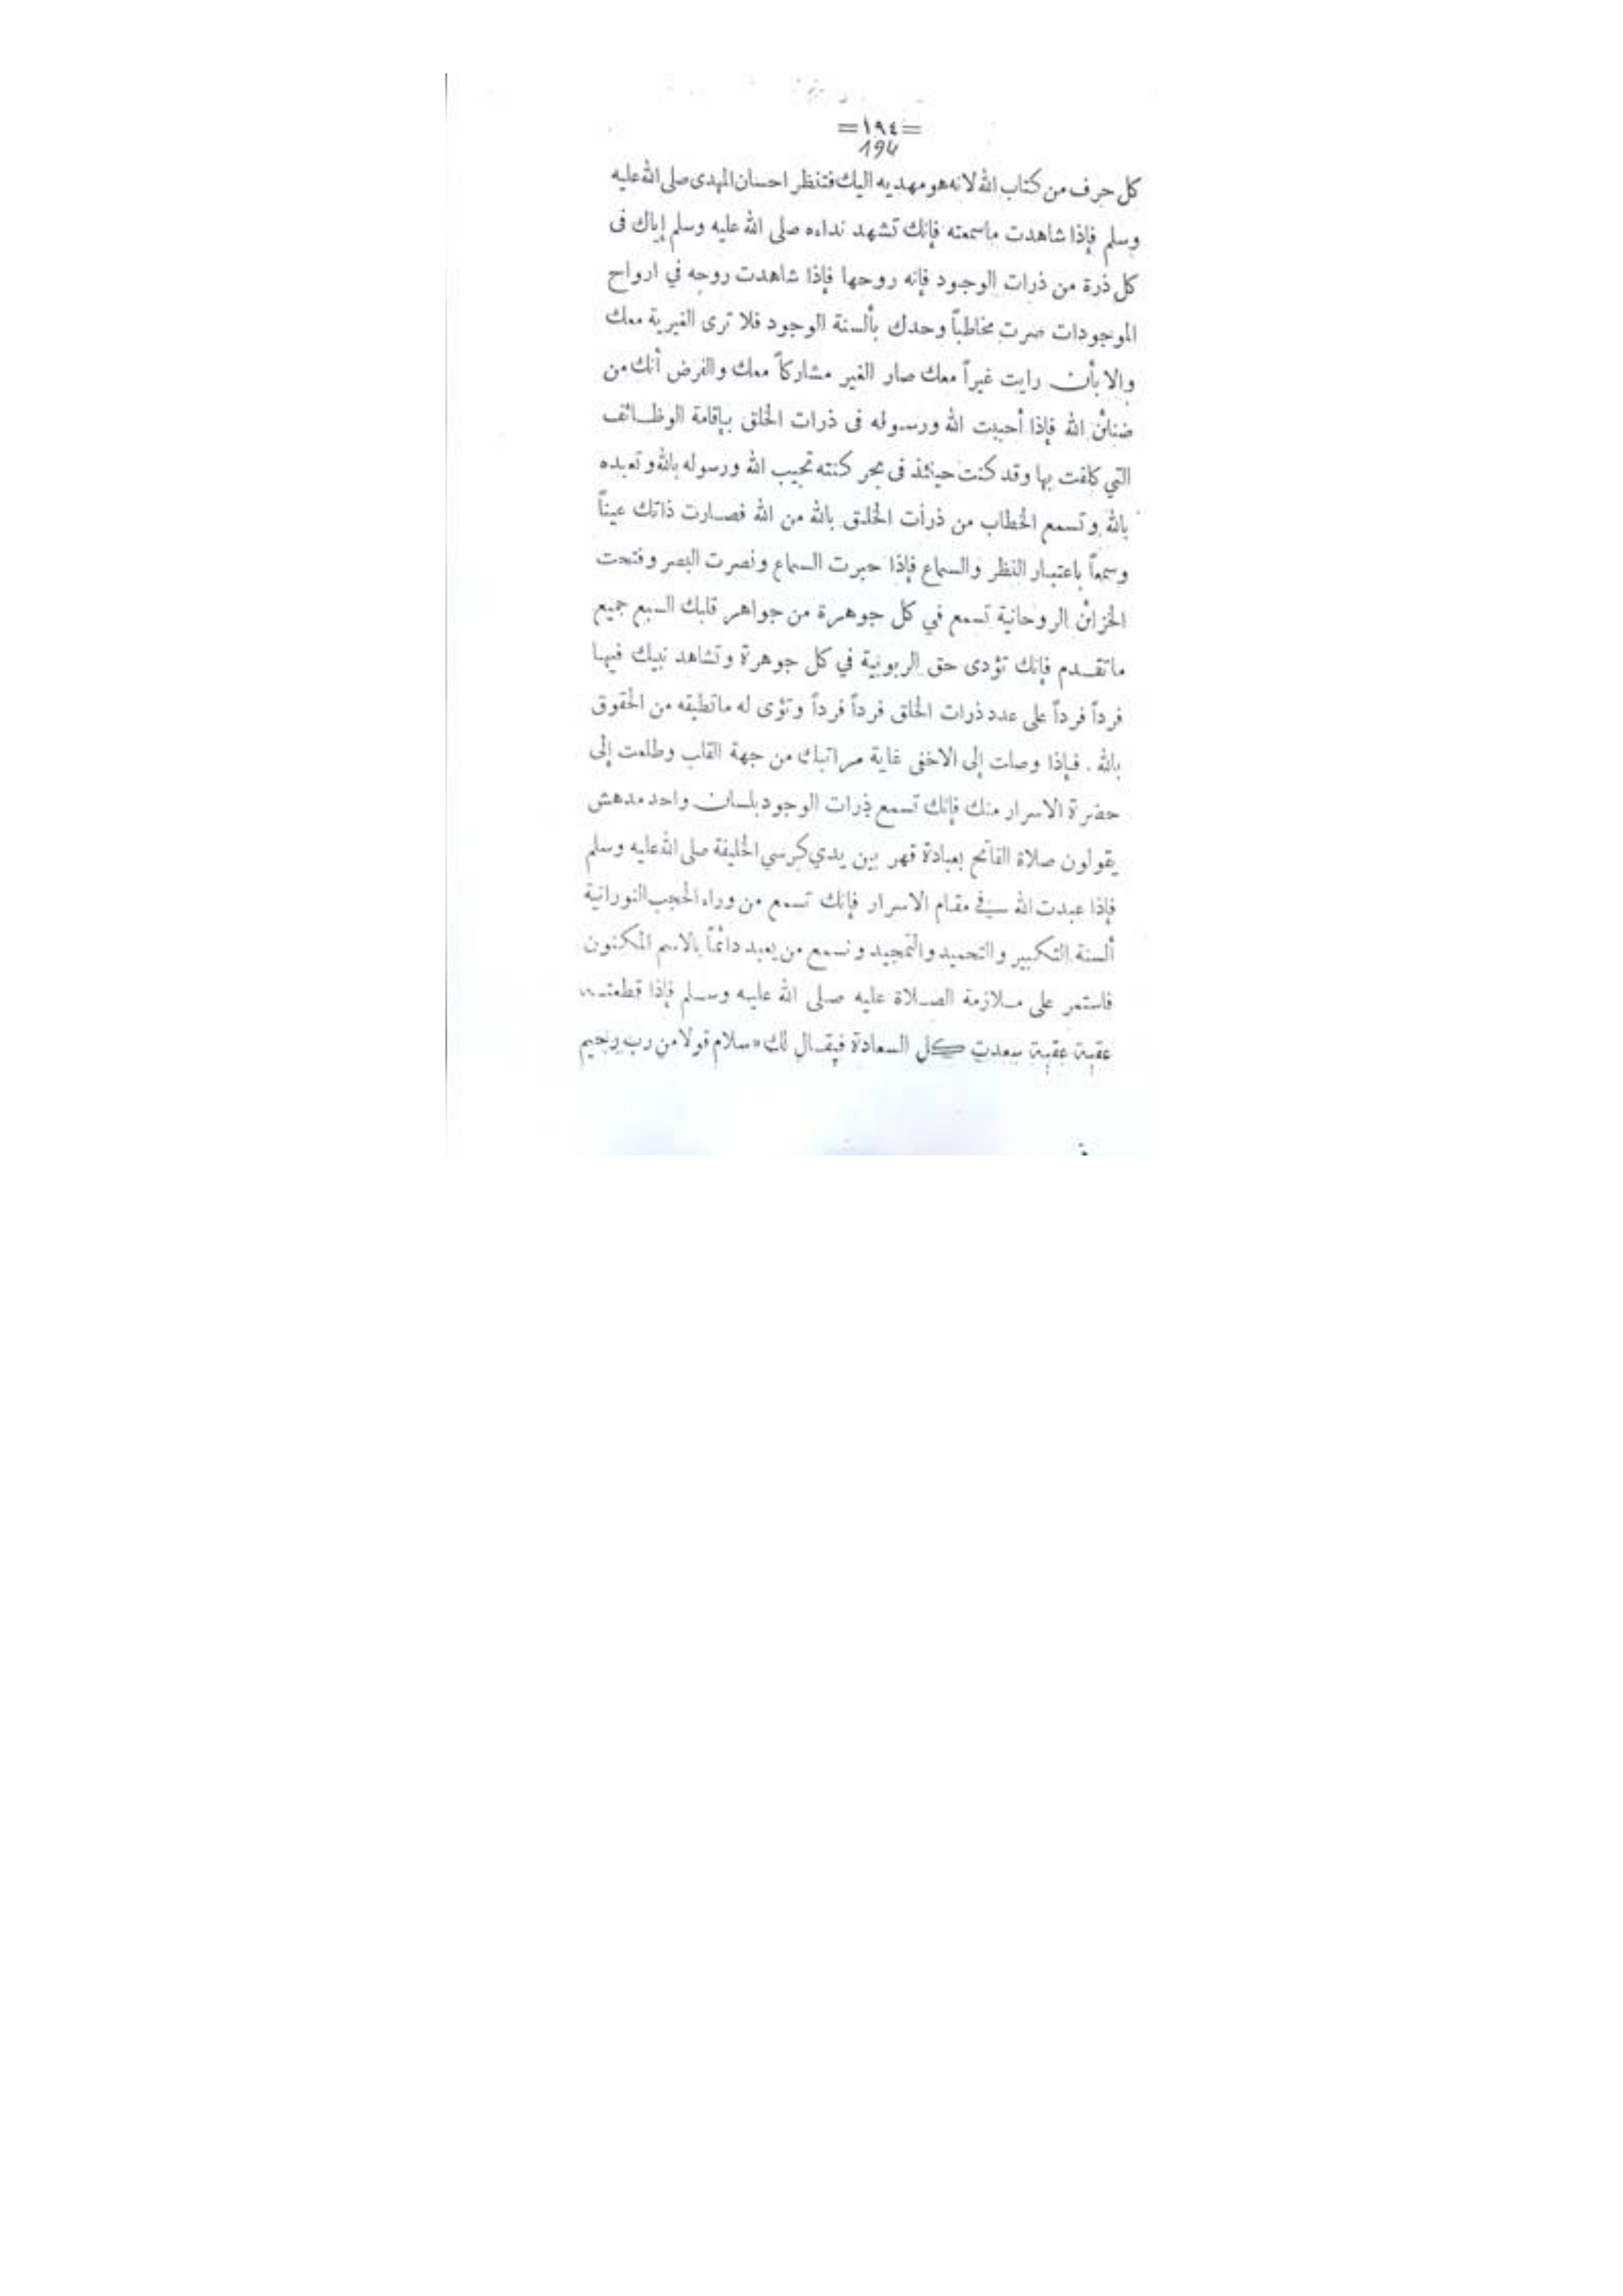 =١٩٤=
194
كل حرف من كتاب الله لانه هو مهديه اليك فتنظر احسان المهدى صلى الله عليه
وسلم فإذا شاهدت ماسمعته فإنك تشهد نداءه صلى الله عليه وسلم إياك فى
كل ذرة من ذرات الوجود فإنه روحها فإذا شاهدت روحه في ارواح
الموجودات صرت مخاطباً وحدك بألسنة الوجود فلا ترى الغيرية معك
والا بأن رايت غيراً معك صار الغير مشاركاً معك والفرض أنك من
ضنائن الله فإذا أحببت الله ورسوله فى ذرات الخلق بإقامة الوظائف
التي كلفت بها وقد كنت حينئذ فى بحر كنته تجيب الله ورسوله بالله وتعبده
بالله وتسمع الخطاب من ذرات الخلق بالله من الله فصارت ذاتك عيناً
وسمعاً باعتبار النظر والسماع فإذا حبرت السماع ونصرت البصر وفتحت
الخزائن الروحانية تسمع في كل جوهرة من جواهر قلبك السبع جميع
ماتقدم فإنك تؤدى حق الربوبية في كل جوهرة وتشاهد نبيك فيها
فرداً فرداً على عدد ذرات الخلق فرداً فرداً وتؤى له ماتطيقه من الحقوق
بالله . فإذا وصلت إلى الاخفى غاية مراتبك من جهة القلب وطلعت إلى
حضرة الاسرار منك فإنك تسمع ذرات الوجود بلسان واحد مدهش
يقولون صلاة الفاتح بعبادة قهر بين يدي كرسي الخليفة صلى الله عليه وسلم
فإذا عبدت الله في مقام الاسرار فإنك تسمع من وراء الحجب النورانية
ألسنة التكبير والتحميد والتمجيد وتسمع من يعبد دائماً بالاسم المكنون
فاستمر على ملازمة الصلاة عليه صلى الله عليه وسلم فإذا قطعت
عقبة عقبة سعدت كل السعادة فيقال لك «سلام قولا من رب رحيم